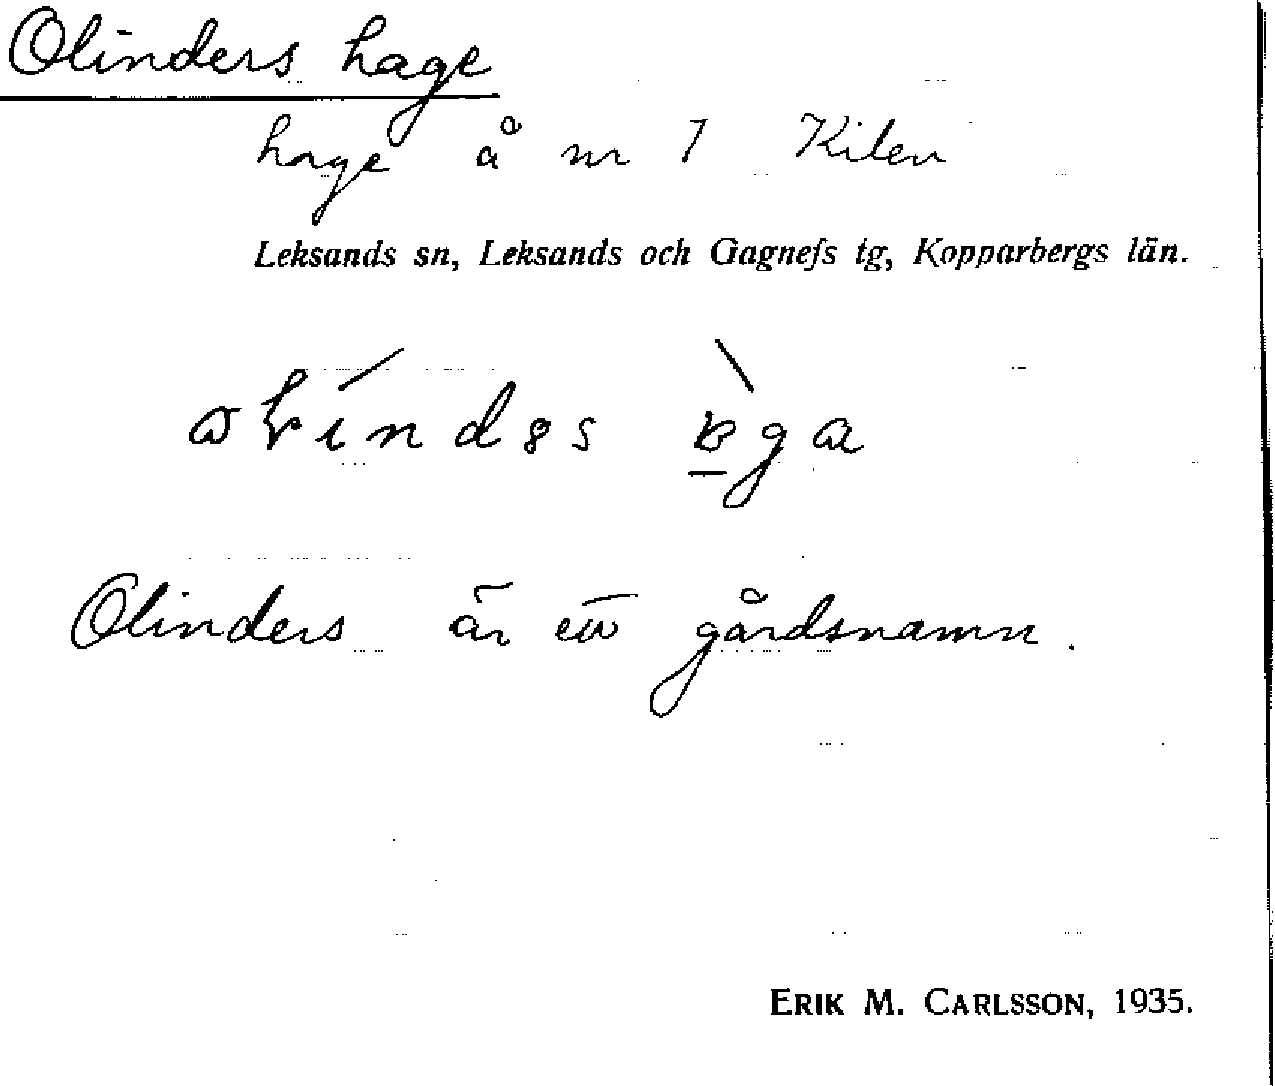 Olinders hage
hage å nr 7 Kilen
Leksands sn, Leksands och Gagnefs tg, Kopparbergs län.
Olinders är ett gårdsnamn.
ERIK M. CARLSSON, 1935.